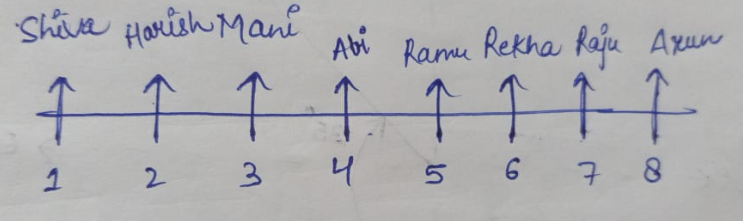 Shiva Harish Mani Abi Ramu Rekha Raju Arun
1 2 3 4 5 6 7 8